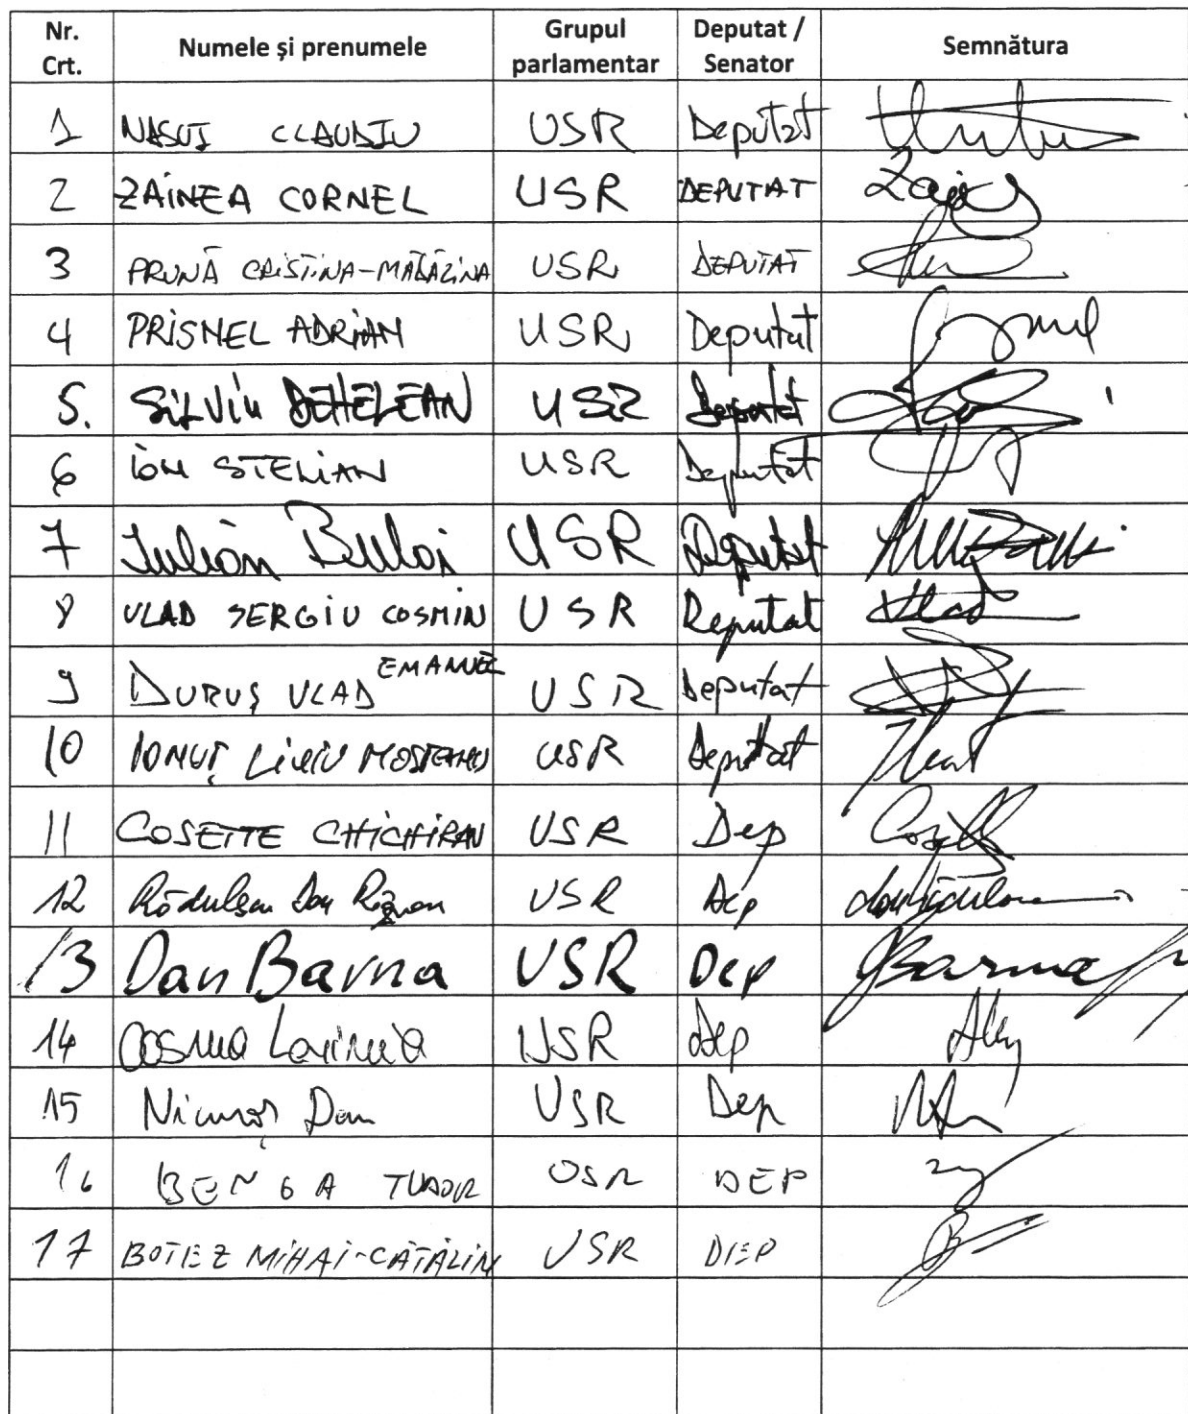 Nr. Crt. Numele și prenumele Grupul parlamentar Deputat / Senator Semnătura
1 NASUI CLAUDIU USR Deputat
2 ZAINEA CORNEL USR DEPUTAT
3 PRUNĂ CRISTINA-MĂDĂLINA USR DEPUTAT
4 PRISNEL ADRIAN USR Deputat
5. SILVIU DEHELEAN USR Deputat
6 ION STELIAN USR Deputat
7 Iulian Bulai USR Deputat
8 VLAD SERGIU COSMIN USR Deputat Vlad
9 DURUȘ VLAD EMANUEL USR Deputat
10 IONUȚ LIVIU MOSTEANU USR Deputat
11 COSETTE CHICHIRAU USR Dep
12 Rădulescu Dan Răzvan USR Dep
13 Dan Barna USR Dep Barna
14 Cosma Lavinia USR Dep
15 Dan USR Dep
16 BENGA TUDOR USR DEP
17 BOTEZ MIHAI-CĂTĂLIN USR DEP